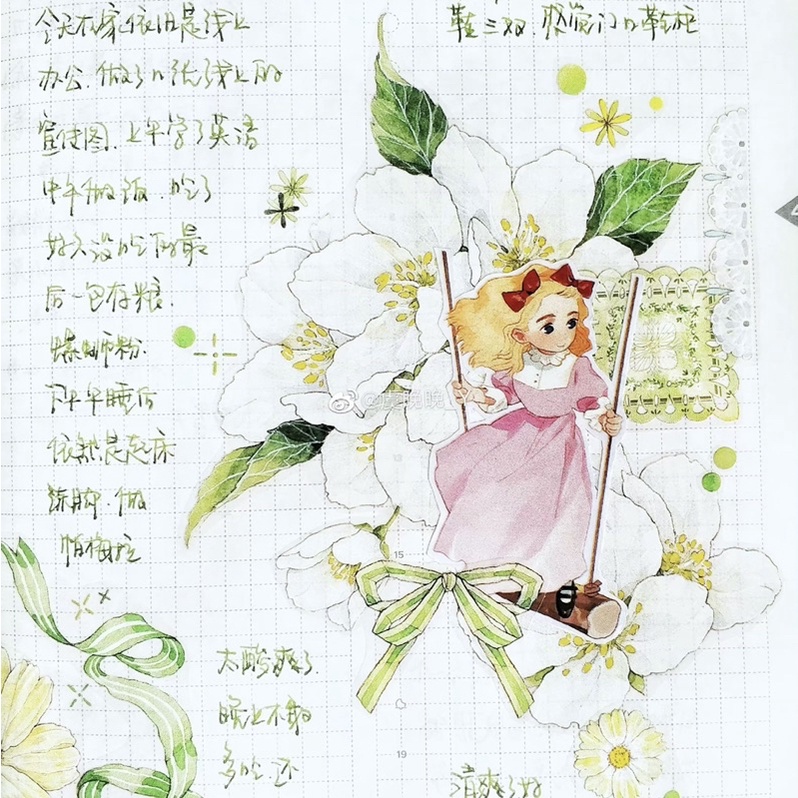 今天在家依旧是线上
办公.做了几张线上的
宣传图.上午学了英语
中午做饭.吃了
好久没吃的最
后一包存粮.
螺蛳粉.
下午午睡后
依然是起床
练胸.做
帕梅拉
太酸爽了.
晚上不敢
多吃.还
鞋三双.感觉门口鞋柜
清爽了好
15
19